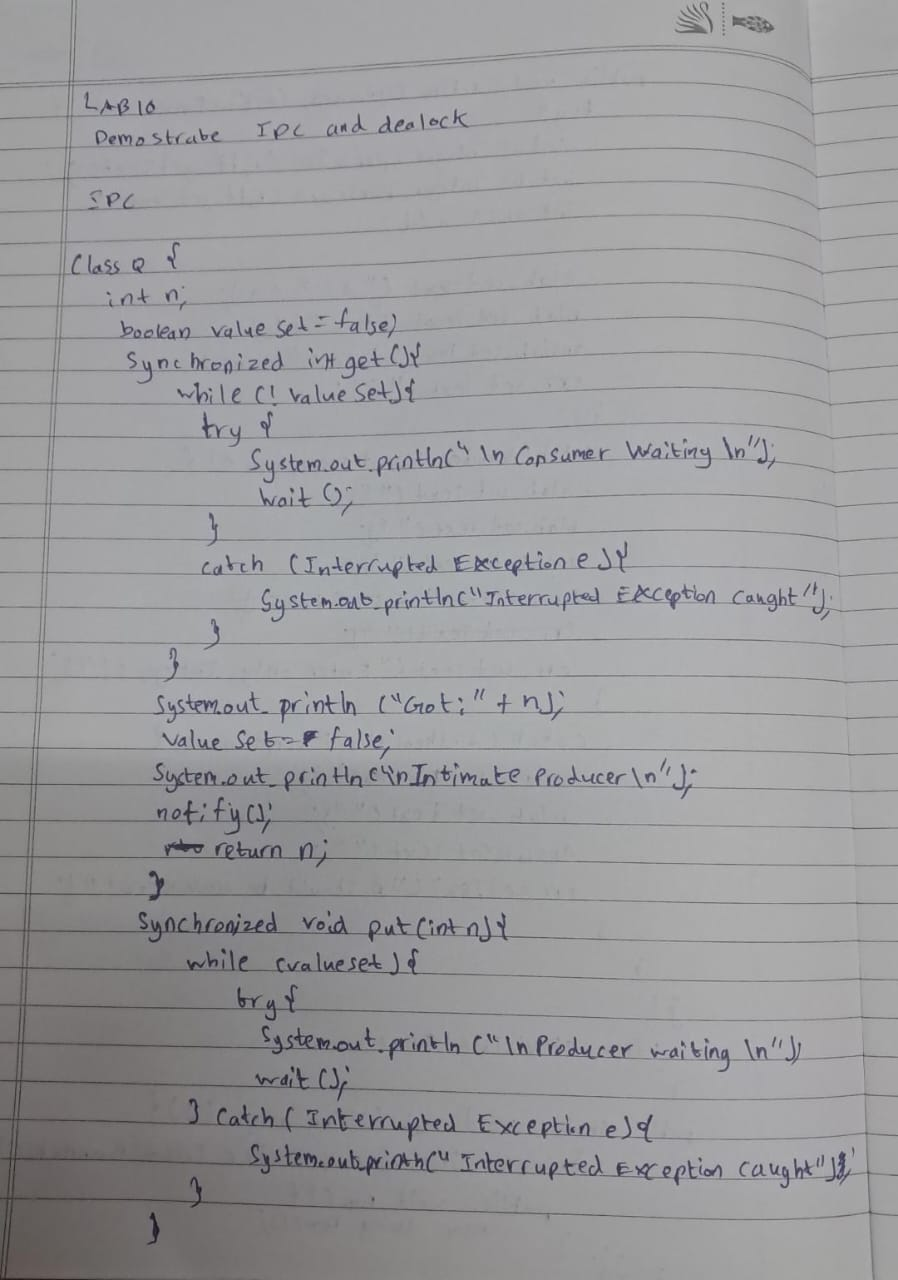 LAB 10
Demostrate IPC and dealock
IPC
Class Q {
int n;
boolean value set = false;
Synchronized int get () {
while (! value Set) {
try {
System.out.println(" \n Consumer Waiting \n");
wait ();
}
catch (Interrupted Exception e) {
System.out.println("Interrupted Exception Caught");
}
}
System.out.println ("Got:" + n);
value Set = false;
System.out.println("\n Intimate Producer \n");
notify();
return n;
}
Synchronized void put (int n) {
while (valueset) {
try {
System.out.println ("\n Producer waiting \n");
wait ();
} catch ( Interrupted Exception e) {
System.out.println(" Interrupted Exception caught");
}
}